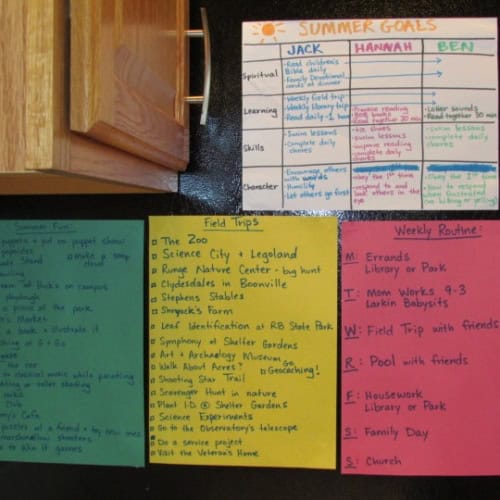 SUMMER GOALS
JACK HANNAH BEN
Spiritual
• Read children's Bible daily
• Family Devotional cards at dinner
Learning
• Weekly field trip
• Weekly library trip
• Read daily - 1 hour
• Practice reading BOB books
• Read together 30 min
• Letter sounds
• Read together 30 min
Skills
• Swim lessons
• Complete daily chores
• Tie shoes
• Swim lessons
• improve reading
• complete daily chores
• Swim lessons
• complete daily chores
Character
• Encourage others with words
• Humility
• Let others go first
• Obey the 1st time
• respond to and look others in the eye
• Obey the 1st time
• how to respond when frustrated
(no hitting or yelling!)
Summer Fun:
puppets + put on puppet show!
popsicles
Stand
make a soap cloud
on campus
playdough
picnic at the park
Market
a book + illustrate it
the zoo
to classical music while painting
or roller skating
Cafe
puzzles w/ a friend + try new ones
marshmallow shooters
games
Field Trips
The Zoo
Science City + Legoland
Runge Nature Center - bug hunt
Clydesdales in Boonville
Stephens Stables
Shryock's Farm
Leaf Identification at RB State Park
Symphony at Shelter Gardens
Art + Archaeology Museum
Walk About Acres?
Go Geocaching!
Shooting Star Trail
Scavenger Hunt in nature
Plant I.D. @ Shelter Gardens
Science Experiments
Go to the Observatory's telescope
Do a service project
Visit the Veteran's Home
Weekly Routine:
M: Errands
Library or Park
T: Mom Works 9-3
Larkin Babysits
W: Field Trip with friends
R: Pool with friends
F: Housework
Library or Park
S: Family Day
S: Church